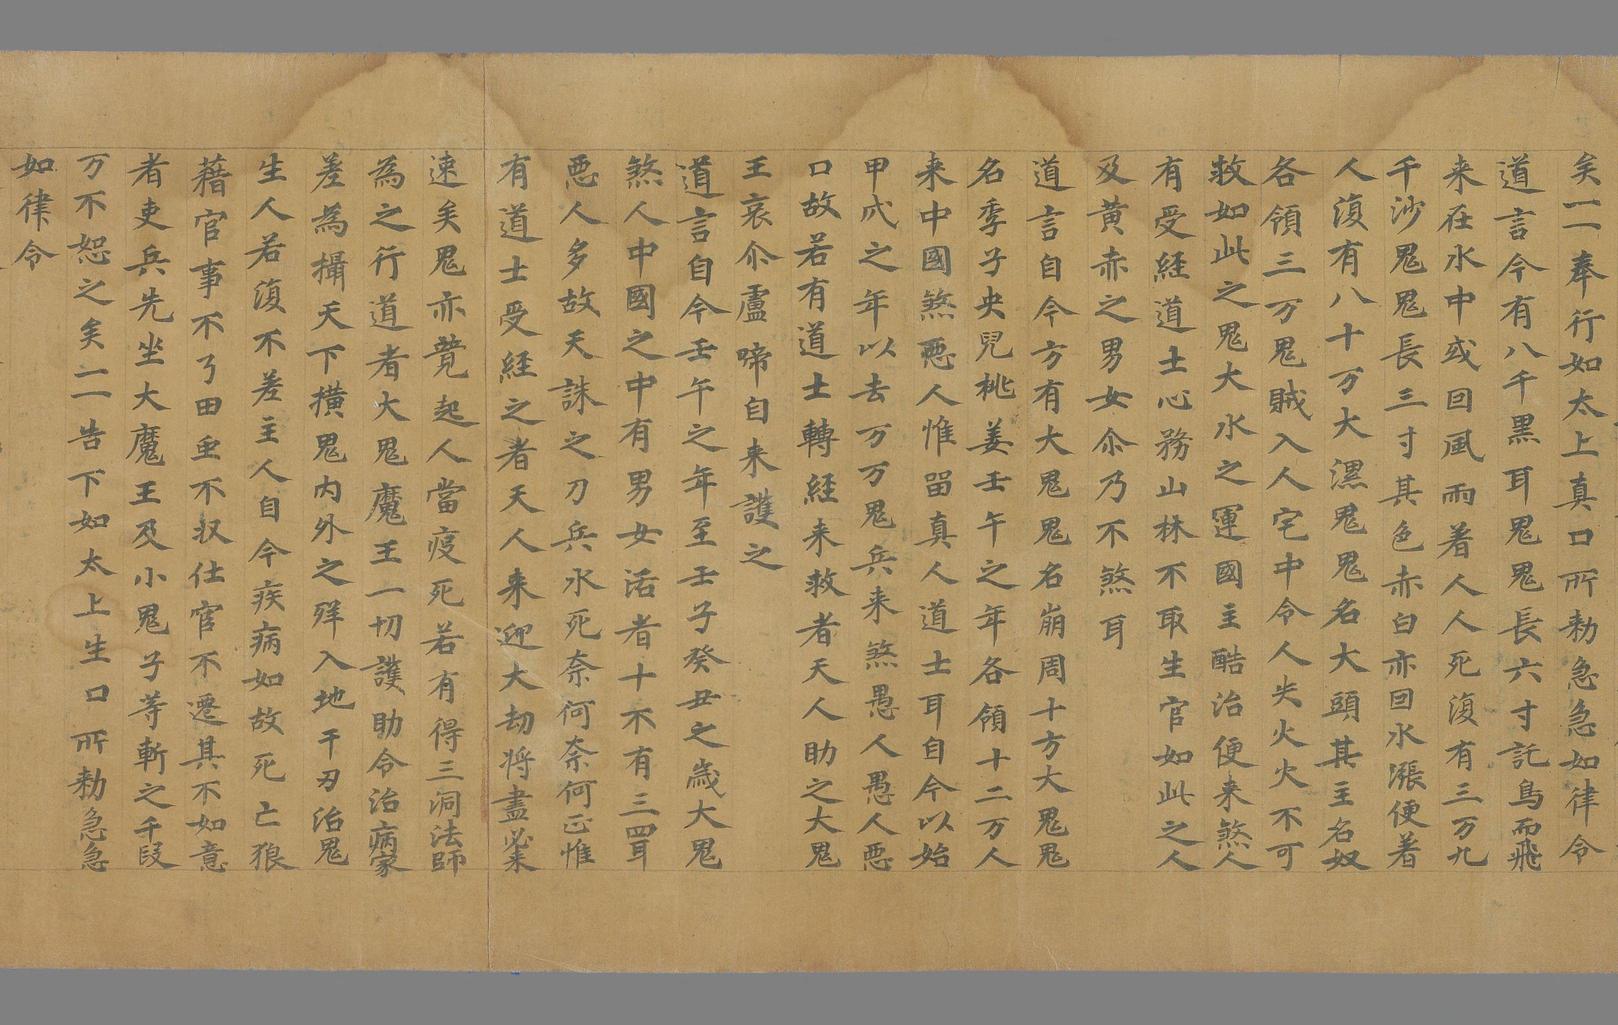 矣一一奉行如太上真口所勑急急如律令
道言今有八千黑耳鬼鬼長六寸託鳥而飛
来在水中或回風雨着人人死復有三万九
千沙鬼鬼長三寸其色赤白亦回水漲便着
人復有八十万大漯鬼鬼名大頭其主名奴
各領三万鬼賊入人宅中令人失火火不可
救如此之鬼大水之運國主酷治便来煞人
有受經道士心務山林不取生官如此之人
及黄赤之男女尒乃不煞耳
道言自今方有大鬼鬼名崩周十方大鬼鬼
名季子央兒桃姜壬午之年各領十二万人
来中國煞惡人惟留真人道士耳自今以始
甲戌之年以去万万鬼兵来煞愚人愚人惡
口故若有道士轉經来救者天人助之大鬼
王哀尒盧啼自来護之
道言自今壬午之年至壬子癸丑之歲大鬼
煞人中國之中有男女活者十不有三四耳
惡人多故天誅之刀兵水死奈何奈何正惟
有道士受經之者天人来迎大劫将盡必来
速矣鬼亦競起人當疫死若有得三洞法師
為之行道者大鬼魔王一切護助令治病家
差為攝天下橫鬼内外之殃入地千刃治鬼
生人若復不差主人自今疾病如故死亡狼
藉官事不了田蚕不収仕官不遷其不如意
者吏兵先坐大魔王及小鬼子等斬之千段
万不恕之矣一一告下如太上生口所勑急急
如律令